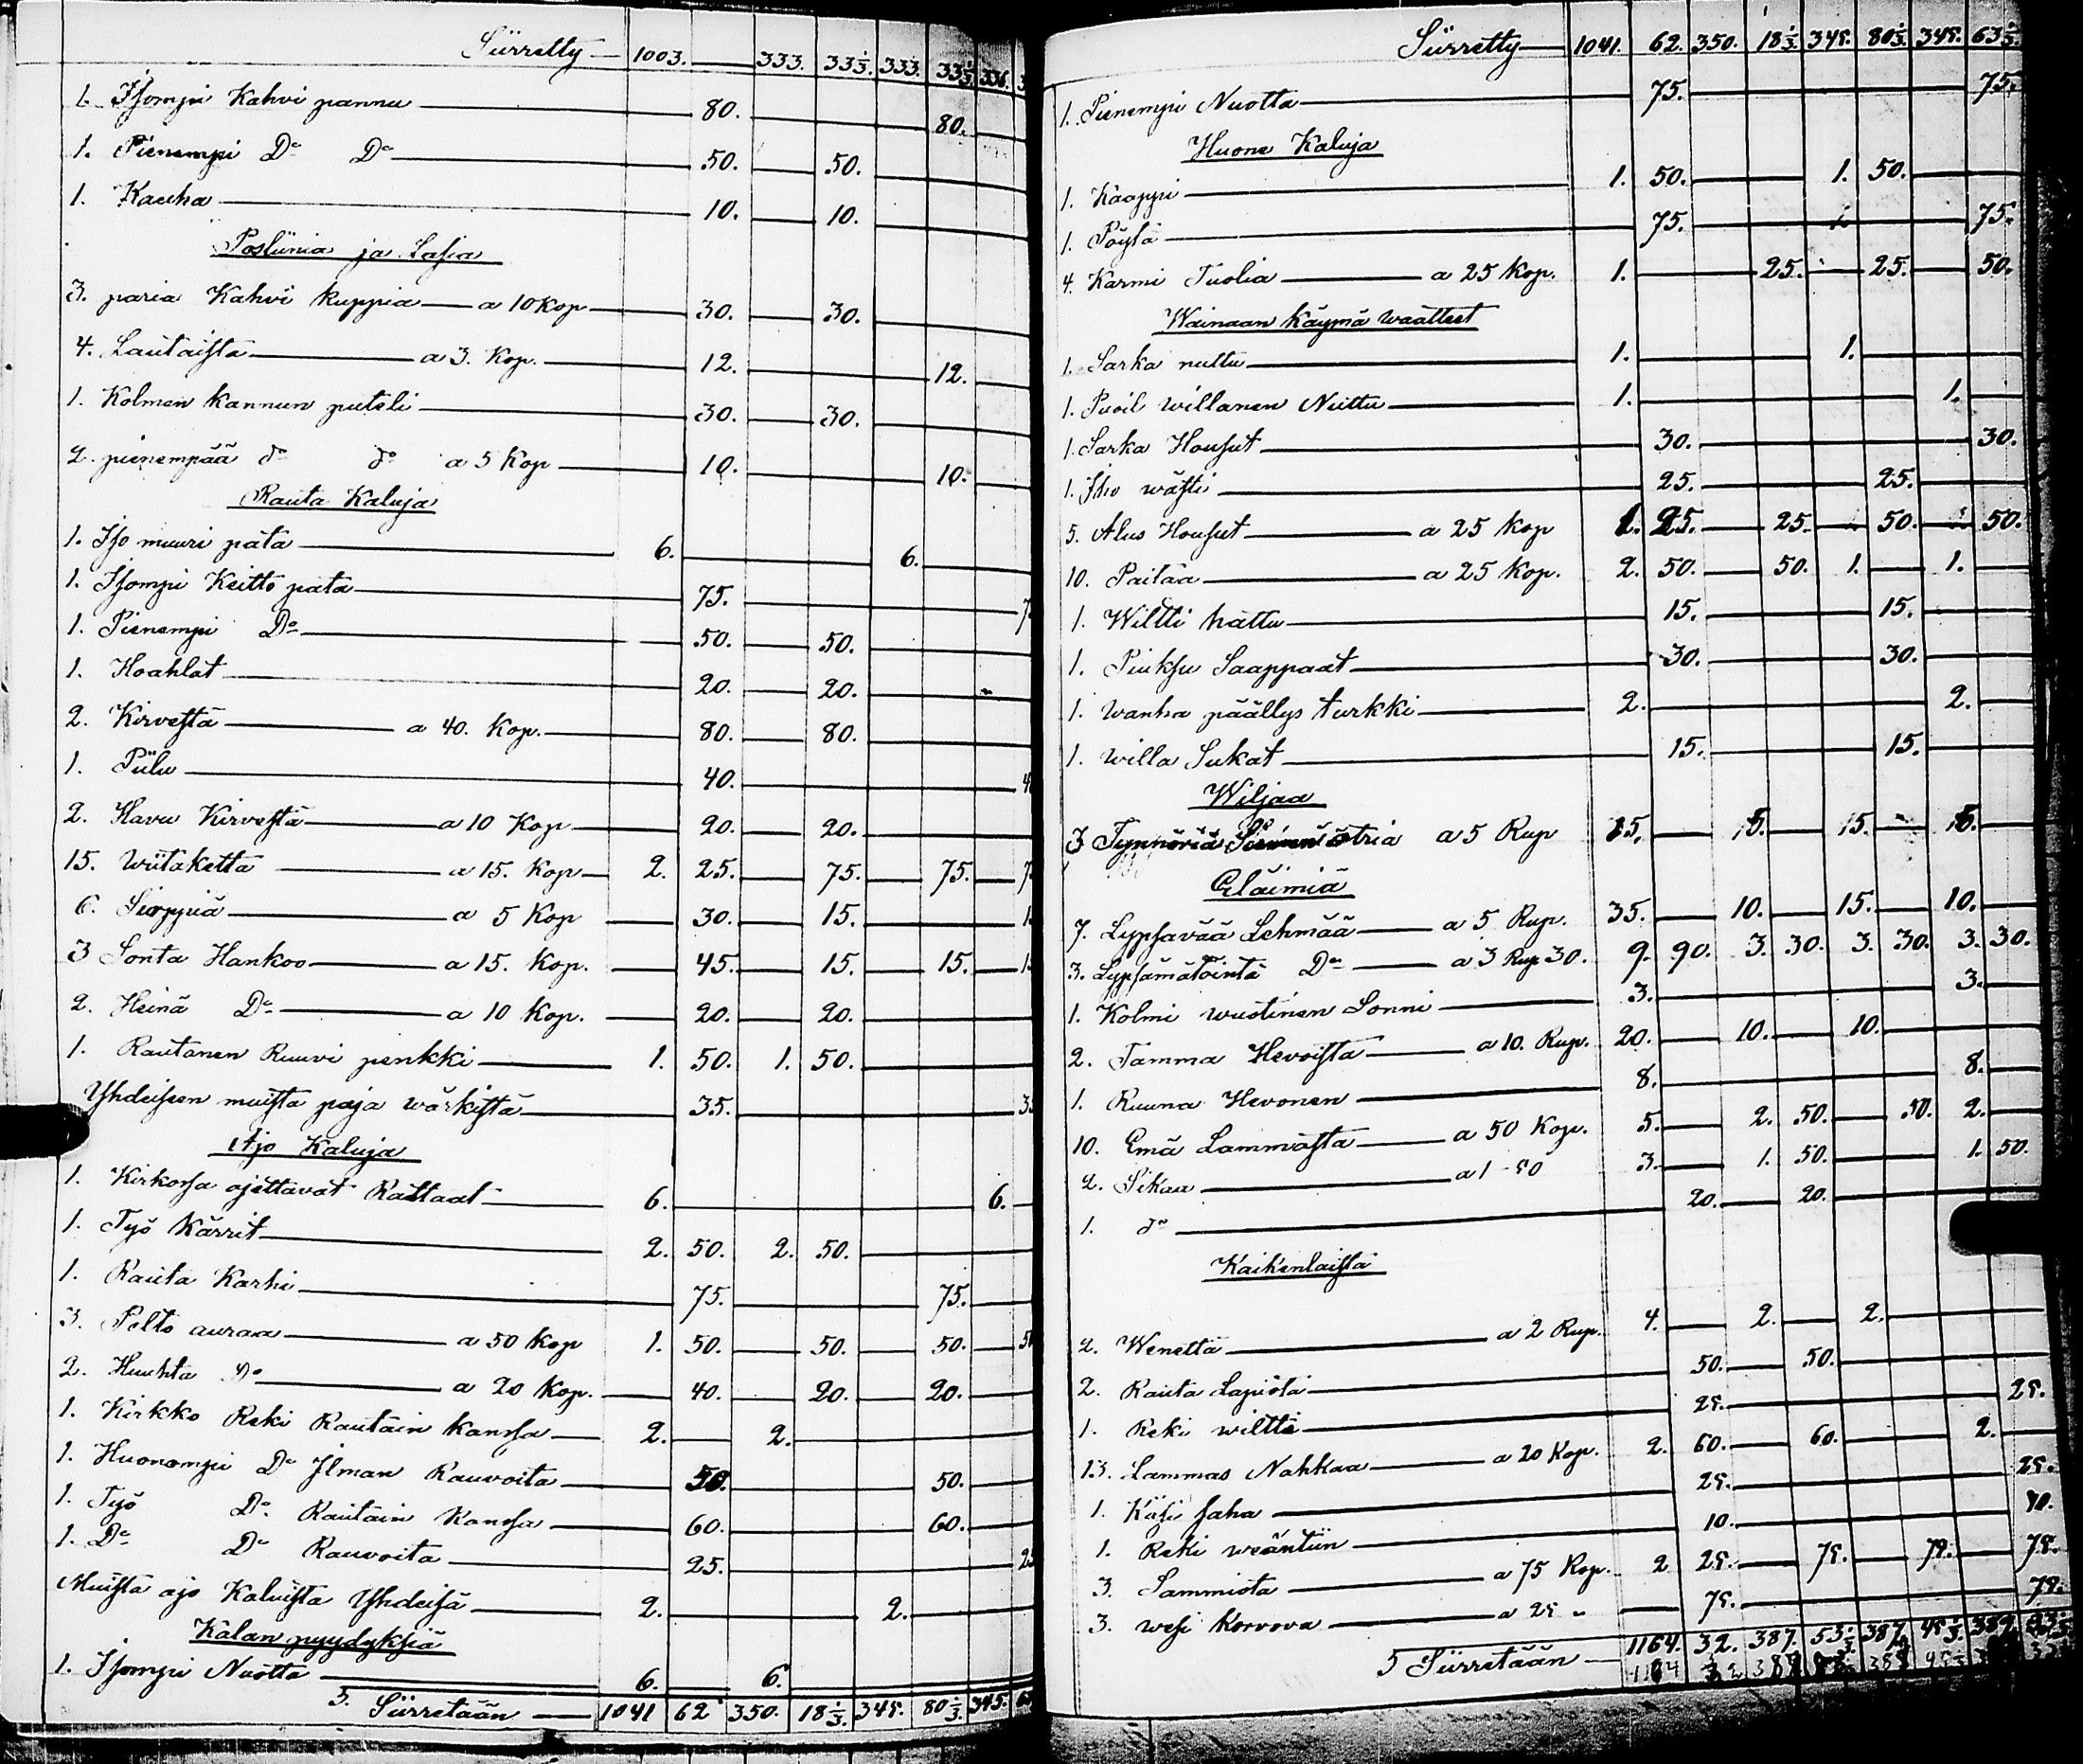 Siirretty — 1003. — 333. 33⅓. 333. 33⅓. 334.
1. Isompi Kahvi pannu — 80. — 80.
1. Pienempi Do Do — 50. — 50.
1. Kauha — 10. — 10.
Posliinia ja Lasia
3. paria Kahvi kuppia — a 10 Kop — 30. — 30.
4. Lautaista — a 3. Kop. — 12. — 12.
1. Kolmen kannun puteli — 30. — 30.
2. pienempää do do a 5 Kop — 10. — 10.
Rauta Kaluja
1. Iso muuri pata — 6. — 6.
1. Isompi Keitto pata — 75.
1. Pienempi Do — 50. — 50.
1. Hoahlat — 20. — 20.
2. Kirvestä — a 40. Kop. — 80. — 80.
1. Piilu — 40.
2. Havu Kirvestä — a 10 Kop — 20. — 20.
15. Wiitaketta — a 15. Kop — 2. 25. — 75. — 75.
6. Sirppiä — a 5 Kop — 30. — 15.
3 Sonta Hankoo — a 15. Kop. — 45. — 15. — 15.
2. Heinä Do — a 10 Kop. — 20. — 20.
1. Rautanen Ruuvi penkki — 1. 50. 1. 50.
Yhdeisen muista paja wärkistä — 35.
Ajo Kaluja
1. Kirkossa ajettavat Rattaat — 6. — 6.
1. Työ Kärrit — 2. 50. 2. 50.
1. Rauta Karhi — 75. — 75.
3. Pelto auraa — a 50 Kop 1. 50. — 50. — 50. — 50
2. Huuhta Do — a 20 Kop. — 40. — 20. — 20.
1. Kirkko Reki Rautain kanssa — 2. — 2.
1. Huonompi Do Ilman Rauvoita — 50. — 50.
1. Työ Do. Rautain Kanssa — 60. — 60.
1. Do Do Rauvoita — 25. — 25
Muista ajo Kaluista Yhdeisä — 2. — 2.
Kalan pyydyksiä
1. Isompi Nuotta — 6. — 6.
5. Siirretään — 1041 62 350. 18⅓. 345. 80⅓. 345.
Siirretty — 1041. 62. 350. 18⅓. 345. 80⅓. 345. 63⅓.
1. Pienempi Nuotta — 75. — 75.
Huone Kaluja
1. Kaappi — 1. 50. — 1. 50.
1. Pöytä — 75. — 75.
4. Karmi Tuolia — a 25 Kop. 1. — 25. — 25. — 50.
Wainaan Käymä waatteet
1. Sarka nuttu — 1. — 1.
1. Puoli willanen Nuttu — 1. — 1.
1. Sarka Housut — 30. — 30.
1. Iho wästi — 25. — 25.
5. Alus Housut — a 25 Kop 1. 25. — 25. — 50. — 50.
10. Paitaa — a 25 Kop. 2. 50. — 50. 1. — 1.
1. Wiltti hattu — 15. — 15.
1. Piuksu Saappaat — 30. — 30.
1. wanha päällys turkki — 2. — 2.
1. willa Sukat — 15. — 15.
Wiljaa
3 Tynnöriä otria a 5 Rup 15. — 5. — 5. — 5.
Eläimiä
7. Lypsavää Lehmää — a 5 Rup. 35. — 10. — 15. — 10.
3. Lypsämätöintä Do — a 3 Rup 30. 9. 90. 3. 30. 3. 30. 3. 30.
1. Kolmi wuotinen Sonni — 3. — 3.
2. Tamma Hevoista — a 10. Rup. 20. — 10. — 10.
1. Ruuna Hevonen — 8. — 8.
10. Emä Lammasta — a 50 Kop. 5. — 2. 50. — 50. 2.
2. Sikaa — a 1 - 50 3. — 1. 50. — 1. 50.
1. do — 20. — 20.
Kaikenlaista
2. Wenettä — a 2 Rup. 4. — 2. — 2.
2. Rauta Lapiota — 50. — 50.
1. Reki wiltti — 25. — 25.
13. Lammas Nahkaa — a 20 Kop. 2. 60. — 60. — 2.
1. Käsi saha — 25. — 25.
1. Reki weäntiin — 10. — 10.
3. Sammiota — a 75 Kop. — 2 25. — 75. — 75. — 75.
3. wesi Korvova — a 25 " — 75. — 75.
5 Siirretään — 1164. 32. 387. 53⅓. 387. 45⅓. 389.